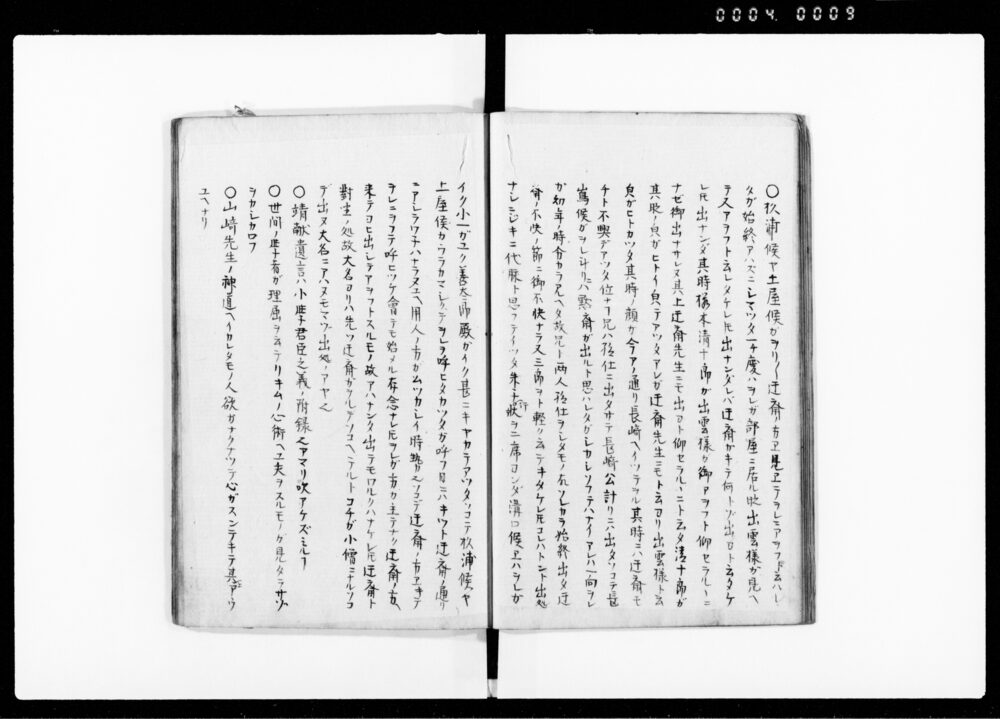 0004 0009
〇杉浦侯ヤ土屋侯ガヲリ〱迂斎ノ方ヱ見ヱテヲレニアヲフト云ハレ
タガ始終アハズニシマツタ一チ度ハヲレガ部屋ニ居ル時出雲様ガ見ヘ
テ又アヲフト云レタケレ𪜈出ナンダレバ迂斎ガキテ何トゾ出ロト云タケ
レ𪜈出ナンダ其時柊木清十郎ガ出雲様ガ御アヲフト仰セラルヽニ
ナゼ御出ナサレヌ其上迂斎先生ニモ出ロト仰セラルヽニト云タ清十郎ガ
其時ノ皃ガヒトイ皃テアツタアレガ迂斎先生ニモト云ヨリ出雲様ト云
皃ガヒトカツタ其時ノ顔ガ今アノ通リ長崎ヘイツテヲル其時ニハ迂斎モ
チト不興デアツタ位ナ丁𪜈ハ孫仕ニ出タサテ長崎公計リニハ出タソコテ長
嶌侯ガヲレ斗リニハ黙斎ガ出ルト思ハレタガシカシソフテハナイアレハ一向ヲレ
ガ幼年ノ時分カラ見ヘタ故兄ト両人孫仕ヲシタモノ𪜈ソレカラ始終出タ迂
斎ノ不快ノ節ニ御不快ナラ又三郎ヲト軽ク云テキタケレ𪜈コレハトント出処
ナシニジキニ代脉ト思フテイツタ朱子行状ヲ二席ヨンダ溝口侯ヱハヲレガ
イク小一ガユク善太郎殿ガイク甚ニキヤカテアツタソコテ杉浦侯ヤ
土屋侯カウラカマシクテヲレヲ呼ヒタカツタガ呼フ日ニハキツト迂斎ノ通リ
ニアシラワ子ハナラヌユヘ用人ノ方ガムツカシイ時勢ガヘソコデ迂斎ノ方ヱキテ
ヲレニヲフテ呼ヒツケ會テモ始メル存念ナレ𪜈ヲレガ方カ主テナク迂斎ノ方ヘ
来テヨヒ出シテアヲフトスルモノ故アハナンタ出テモワルクハナケレ𪜈迂斎ト
對生ノ処故大名ヨリハ先ツ迂斎ガウルシテソコヘデルトコチガ小僧ニナルソコ
デ出ヌ大名ニアハヌモマヅ出処ノアヤヘ
〇靖献遺言ハ小學君臣之義ノ附録ヘアマリ吹アケズミルヘシ
〇世间ノ學者ガ理屈ヲ云テリキムノ心術ヘ工夫ヲスルモノガ見タラサゾ
ヲカシカロフ
〇山﨑先生ノ神道ヘイカレタモノ人欲ガナクナツテ心ガスンテキテ其アマリ
ユヘナリ